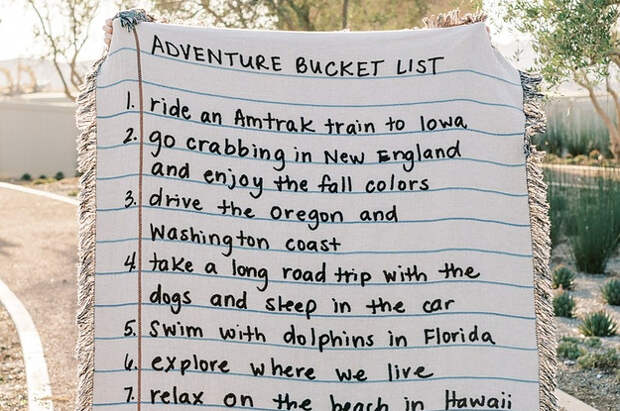 ADVENTURE BUCKET LIST
1. ride an Amtrak train to Iowa
2. go crabbing in New England
and enjoy the fall colors
3. drive the oregon and
Washington coast
4. take a long road trip with the
dogs and sleep in the car
5. Swim with dolphins in Florida
6. explore where we live
7. relax on the beach in Hawaii